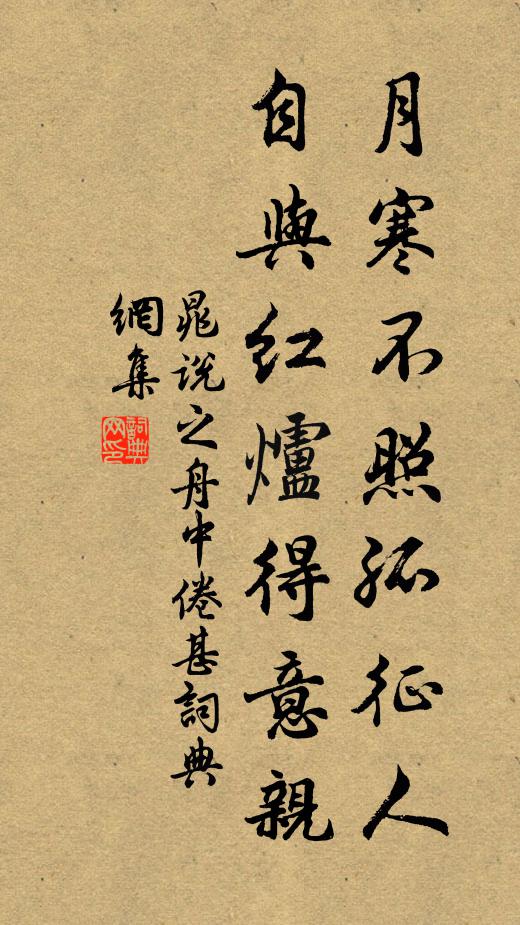 月寒不照孤征人
自與紅爐得意親
晁説之舟中倦甚詞典
網集
詞典網印